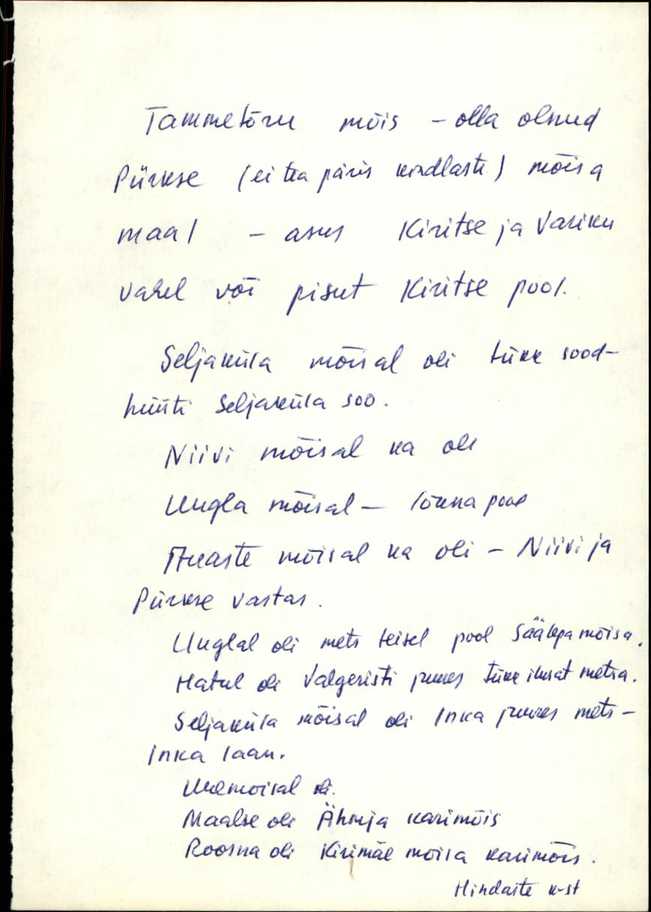 Tammetõru mõis – olla olnud
Piirkse (ei tea päris kindlasti) mõisa
maal – asus Kiritse ja Variku
vahel või pisut Kiritse pool.
Seljaküla mõisal oli tükk sood–
hüüti Seljaküla soo.
Niivi mõisal ka oli
Ungla mõisal – lõuna pool
mõisal ka oli – Niivi ja
Piirkse vastas.
Unglal oli mets teisel pool Sääla mõisa.
Hatul oli Valgeristi juures tükk ilusat metsa.
Seljaküla mõisal oli Inka juures mets –
Inka laan.
Uuemõisal oli.
Maalse oli Ähmja karimõis
Roosna oli Kirimäe mõisa karimõis.
Hindaste k-st